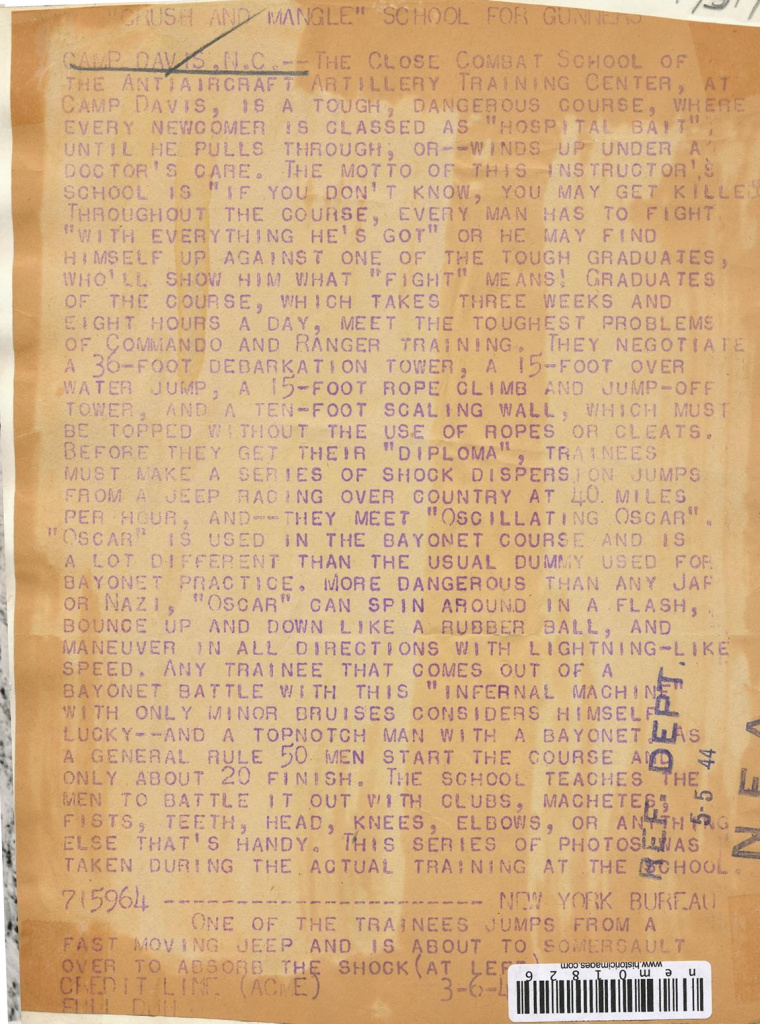 "CRUSH AND MANGLE" SCHOOL FOR GUNNERS
CAMP DAVIS, N.C.--THE CLOSE COMBAT SCHOOL OF
THE ANTIAIRCRAFT ARTILLERY TRAINING CENTER, AT
CAMP DAVIS, IS A TOUGH, DANGEROUS COURSE, WHERE
EVERY NEWCOMER IS CLASSED AS "HOSPITAL BAIT",
UNTIL HE PULLS THROUGH, OR--WINDS UP UNDER A
DOCTOR'S CARE. THE MOTTO OF THIS INSTRUCTOR'S
SCHOOL IS "IF YOU DON'T KNOW, YOU MAY GET KILLED
THROUGHOUT THE COURSE, EVERY MAN HAS TO FIGHT
"WITH EVERYTHING HE'S GOT" OR HE MAY FIND
HIMSELF UP AGAINST ONE OF THE TOUGH GRADUATES,
WHO'LL SHOW HIM WHAT "FIGHT" MEANS! GRADUATES
OF THE COURSE, WHICH TAKES THREE WEEKS AND
EIGHT HOURS A DAY, MEET THE TOUGHEST PROBLEMS
OF COMMANDO AND RANGER TRAINING. THEY NEGOTIATE
A 36-FOOT DEBARKATION TOWER, A 15-FOOT OVER
WATER JUMP, A 15-FOOT ROPE CLIMB AND JUMP-OFF
TOWER, AND A TEN-FOOT SCALING WALL, WHICH MUST
BE TOPPED WITHOUT THE USE OF ROPES OR CLEATS.
BEFORE THEY GET THEIR "DIPLOMA", TRAINEES
MUST MAKE A SERIES OF SHOCK DISPERSION JUMPS
FROM A JEEP RACING OVER COUNTRY AT 40 MILES
PER HOUR, AND--THEY MEET "OSCILLATING OSCAR".
"OSCAR" IS USED IN THE BAYONET COURSE AND IS
A LOT DIFFERENT THAN THE USUAL DUMMY USED FOR
BAYONET PRACTICE. MORE DANGEROUS THAN ANY JAP
OR NAZI, "OSCAR" CAN SPIN AROUND IN A FLASH,
BOUNCE UP AND DOWN LIKE A RUBBER BALL, AND
MANEUVER IN ALL DIRECTIONS WITH LIGHTNING-LIKE
SPEED. ANY TRAINEE THAT COMES OUT OF A
BAYONET BATTLE WITH THIS "INFERNAL MACHINE"
WITH ONLY MINOR BRUISES CONSIDERS HIMSELF
LUCKY--AND A TOPNOTCH MAN WITH A BAYONET. AS
A GENERAL RULE 50 MEN START THE COURSE AND
ONLY ABOUT 20 FINISH. THE SCHOOL TEACHES THE
MEN TO BATTLE IT OUT WITH CLUBS, MACHETES,
FISTS, TEETH, HEAD, KNEES, ELBOWS, OR ANYTHING
ELSE THAT'S HANDY. THIS SERIES OF PHOTOS WAS
TAKEN DURING THE ACTUAL TRAINING AT THE SCHOOL.
715964 ----------------------- NEW YORK BUREAU
ONE OF THE TRAINEES JUMPS FROM A
FAST MOVING JEEP AND IS ABOUT TO SOMERSAULT
OVER TO ABSORB THE SHOCK (AT LEFT)
CREDIT LINE (ACME) 3-6-4
REF. DEPT.
5-5 44
NEA
www.historicimages.com
nem01826